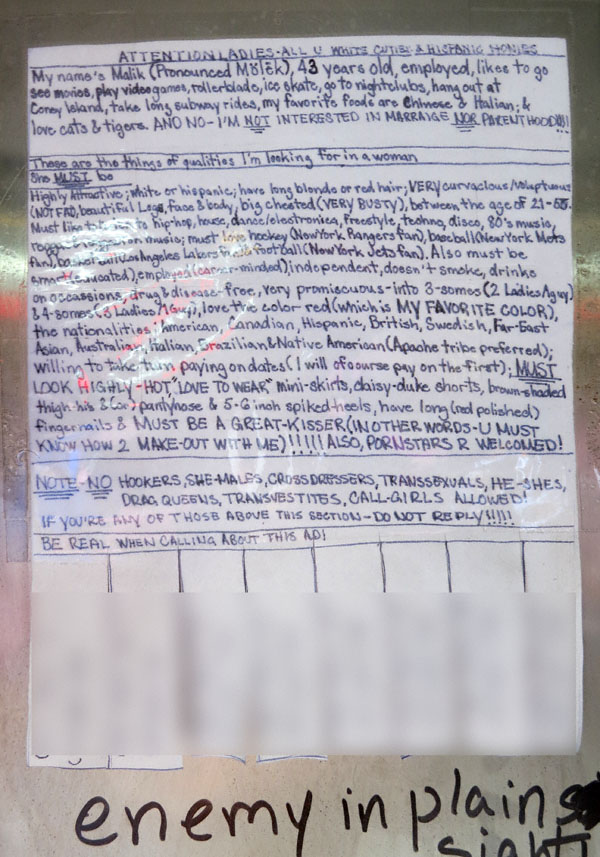 ATTENTION LADIES-ALL U WHITE CUTIES & HISPANIC HONIES
My name's Malik (Pronounced Mälēk), 43 years old, employed, likes to go
see movies, play videogames, rollerblade, ice skate, go to nightclubs, hang out at
Coney Island, take long subway rides, my favorite foods are Chinese & Italian; &
love cats & tigers. AND NO-I'M NOT INTERESTED IN MARRAIGE NOR PARENTHOOD!!!
These are the things of qualities I'm looking for in a woman
She MUST be
Highly Attractive; white or hispanic; have long blonde or red hair; VERY curvacious/voluptuous
(NOT FAT), beautiful Legs, face & body, big chested (VERY BUSTY), between the age of 21-
Must like to to hip-hop, house, dance/electronica, freestyle, techno, disco, 80's music,
music; must love hockey (New York Rangers fan), baseball (New York Mets
fan), Los Angeles Lakers football (New York Jets fan). Also must be
smart (educated), employed (career-minded), independent, doesn't smoke, drinks
on occassions, drug & disease-free, very promiscuous-into 3-somes (2 Ladies/1 guy)
& 4-somes (3 Ladies/1 Guy), love the color red (which is MY FAVORITE COLOR),
the nationalities: American, Canadian, Hispanic, British, Swedish, Far-East
Asian, Australian, Italian, Brazilian & Native American (Apache tribe preferred);
willing to take turn paying on dates (I will of course pay on the first); MUST
LOOK HIGHLY-HOT, "LOVE TO WEAR" mini-skirts, daisy-duke shorts, brown-shaded
thigh-his & (or) pantyhose & 5-6 inch spiked-heels, have long (red polished)
fingernails & MUST BE A GREAT-KISSER (IN OTHER WORDS-U MUST
KNOW HOW 2 MAKE-OUT WITH ME)!!!!! ALSO, PORNSTARS R WELCOMED!
NOTE-NO HOOKERS, SHE-MALES, CROSSDRESSERS, TRANSSEXUALS, HE-SHES,
DRAG QUEENS, TRANSVESTITES, CALL-GIRLS ALLOWED!
IF YOU'RE ANY OF THOSE ABOVE THIS SECTION-DO NOT REPLY!!!!!
BE REAL WHEN CALLING ABOUT THIS AD!
enemy in plain
sight